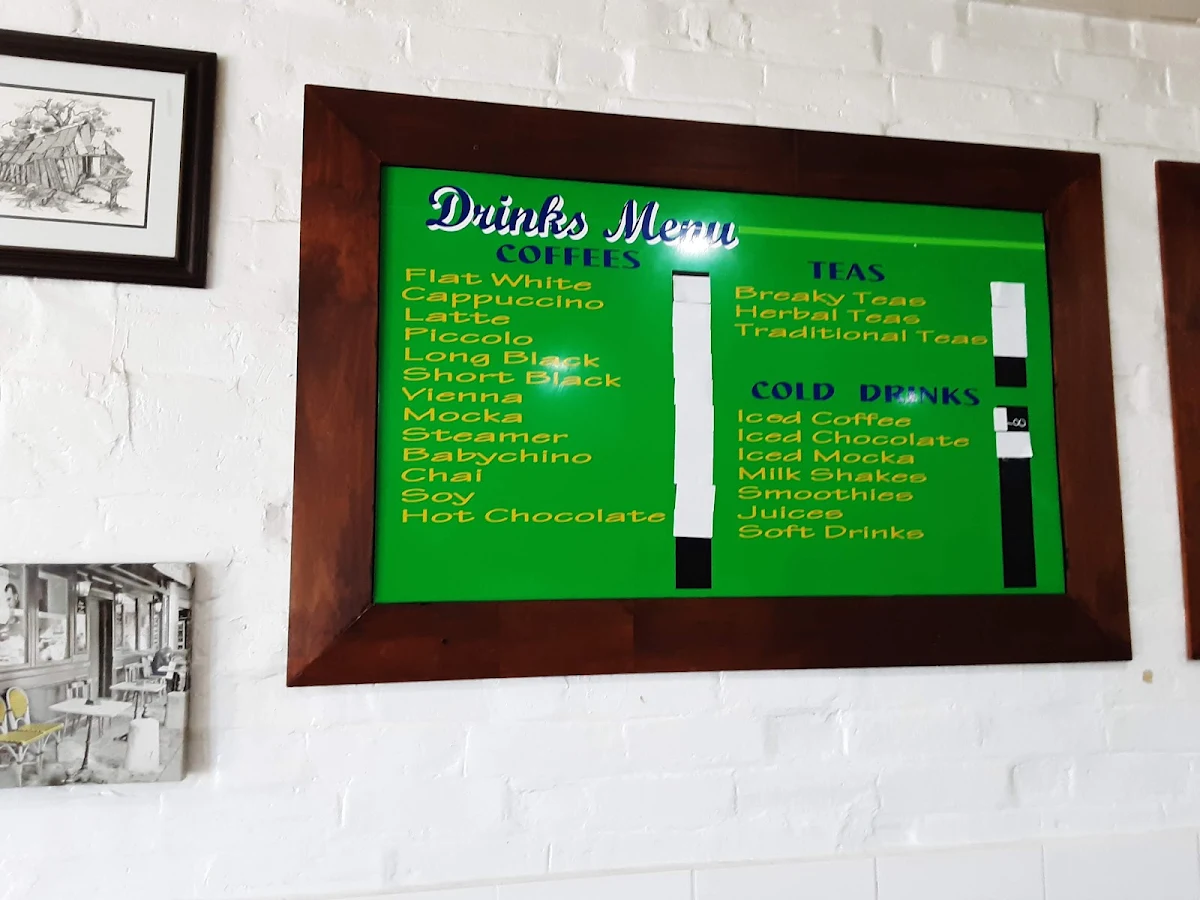 Drinks Menu
COFFEES
Flat White
Cappuccino
Latte
Piccolo
Long Black
Short Black
Vienna
Mocka
Steamer
Babychino
Chai
Soy
Hot Chocolate
TEAS
Breaky Teas
Herbal Teas
Traditional Teas
COLD DRINKS
Iced Coffee
Iced Chocolate
Iced Mocka
Milk Shakes
Smoothies
Juices
Soft Drinks